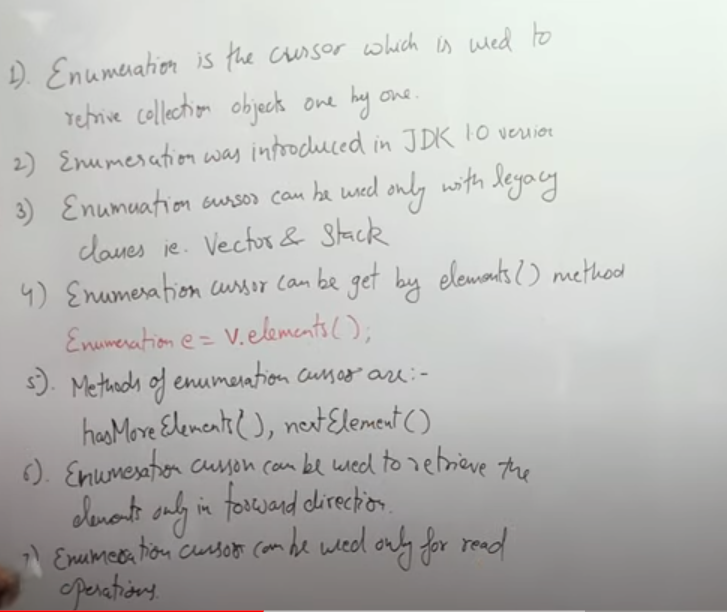 1). Enumeration is the cursor which is used to
retrive collection objects one by one.
2) Enumeration was introduced in JDK 1.0 version
3) Enumeration cursor can be used only with legacy
classes ie. Vector & Stack
4) Enumeration cursor can be get by elements() method
Enumeration e = v.elements();
5). Methods of enumeration cursor are:-
hasMoreElements(), nextElement()
6). Enumeration cursor can be used to retrieve the
elements only in forward direction.
7) Enumeration cursor can be used only for read
operations.